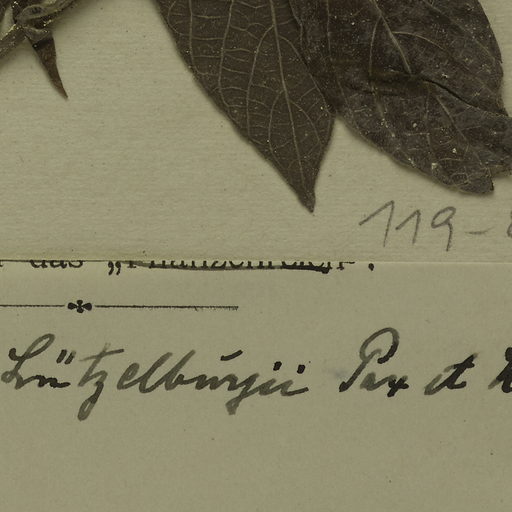 119-
das „Pflanzenreich“.
Lützelburgii Pax et